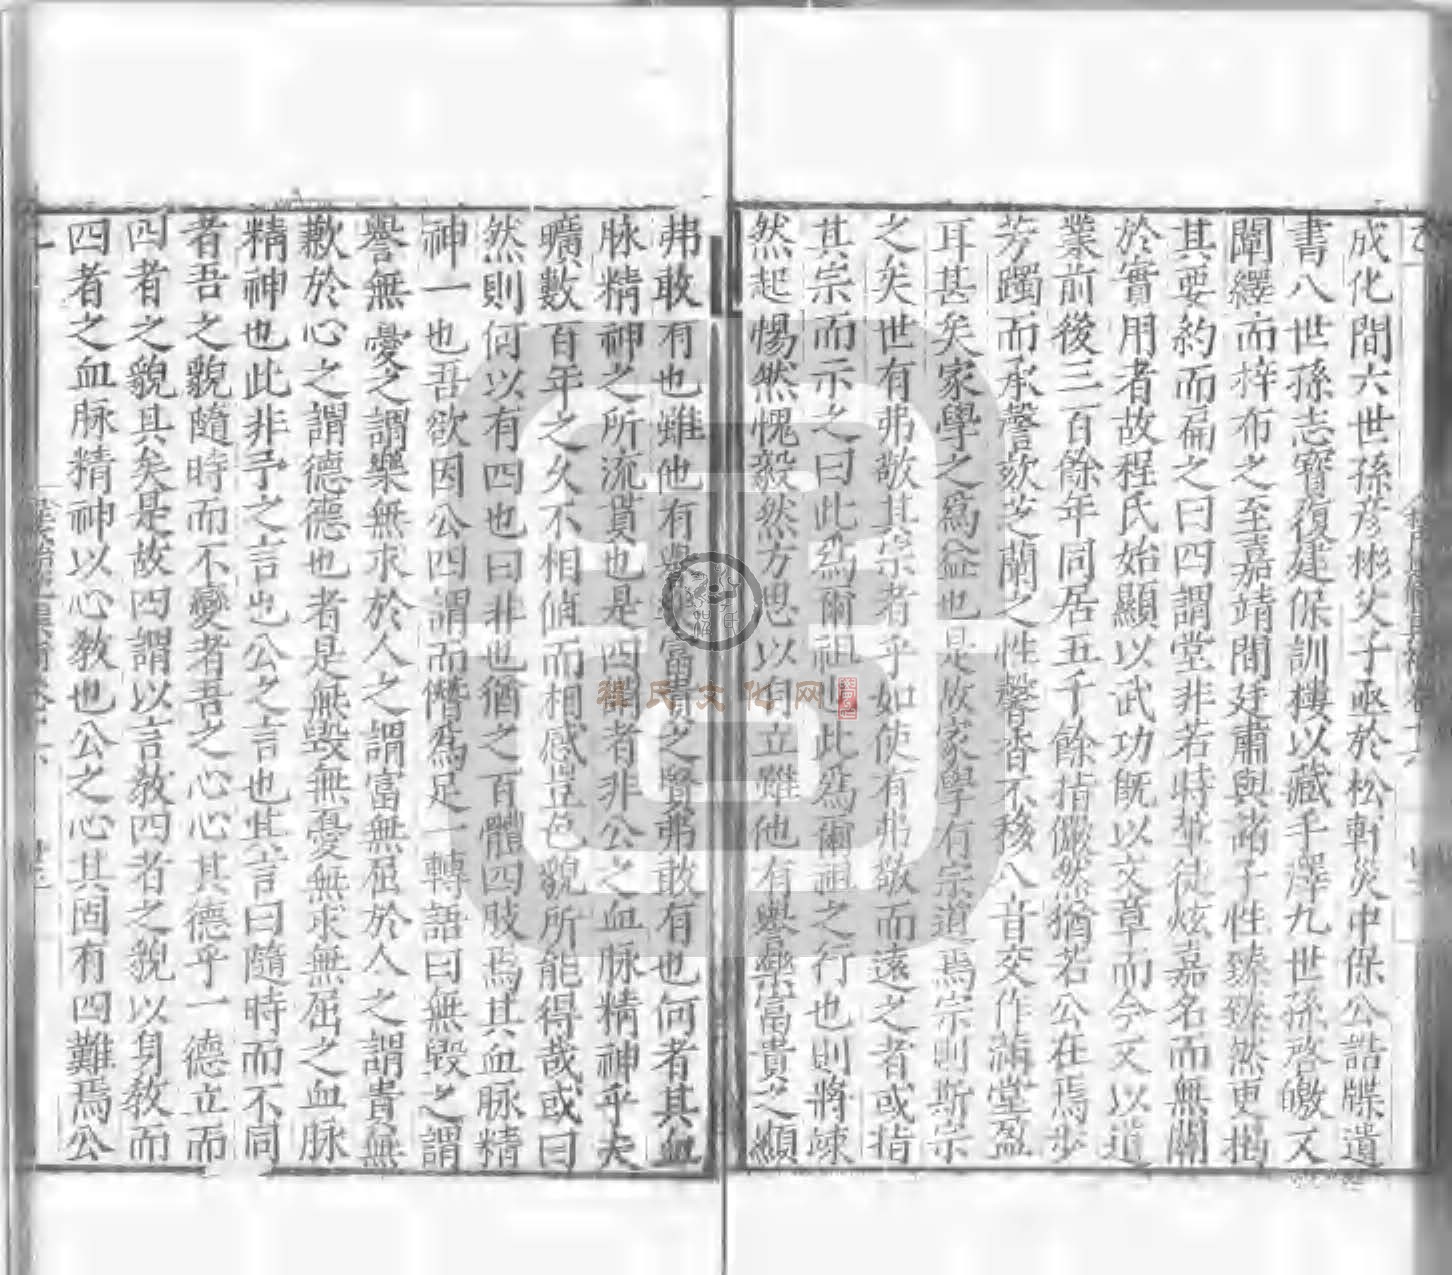 成化間六世孫彦彬父子亟於松軒災中保公誥牒遺
書八世孫志寶復建保訓樓以藏手澤九世孫啓暾又
闡繹而梓布之至嘉靖間廷肅與諸子性臻臻然更揭
其要約而扁之曰四謂堂非若時輩徒炫嘉名而無關
於實用者故程氏始顯以武功既以文章而今又以道
業前後三百餘年同居五千餘指儼然猶若公在焉步
芳躅而承謦欬芝蘭之性馨香不移八音交作滿堂盈
耳甚矣家學之為益也是故家學有宗道焉宗則斯宗
之矣世有弗敬其宗者乎如使有弗敬而遠之者或指
其宗而示之曰此為爾祖 此為爾祖之行也則將竦
然起惕然愧毅然方思以自立雖他有譽樂富貴之顯
弗敢有也雖他有譽樂富貴之賢弗敢有也何者其血
脉精神之所流貫也是四謂者非公之血脉精神乎夫
曠數百年之久不相値而相感豈色貌所能得哉或曰
然則何以有四也曰非也猶之百體四肢焉其血脉精
神一也吾欲因公四謂而僭為足一轉語曰無毀之謂
譽無憂之謂樂無求於人之謂富無屈於人之謂貴無
歉於心之謂德德也者是無毀無憂無求無屈之血脉
精神也此非予之言也公之言也其言曰隨時而不同
者吾之貌隨時而不變者吾之心心其德乎一德立而
四者之貌具矣是故四謂以言教四者之貌以身教而
四者之血脉精神以心教也公之心其固有四難焉公
程氏文化网